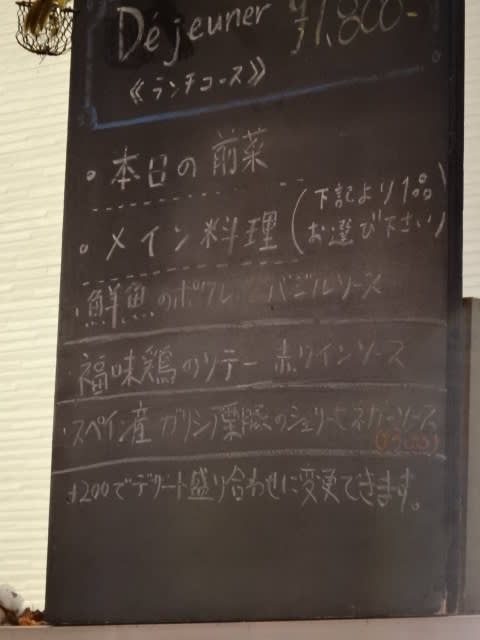 Déjeuner ¥1,800-
《ランチコース》
・本日の前菜
・メイン料理(下記より1品
お選び下さい)
・鮮魚のポワレ バジルソース
・福味鶏のソテー 赤ワインソース
・スペイン産ガリシア栗豚のシェリービネガーソース
(+300)
+200でデザート盛り合わせに変更できます。